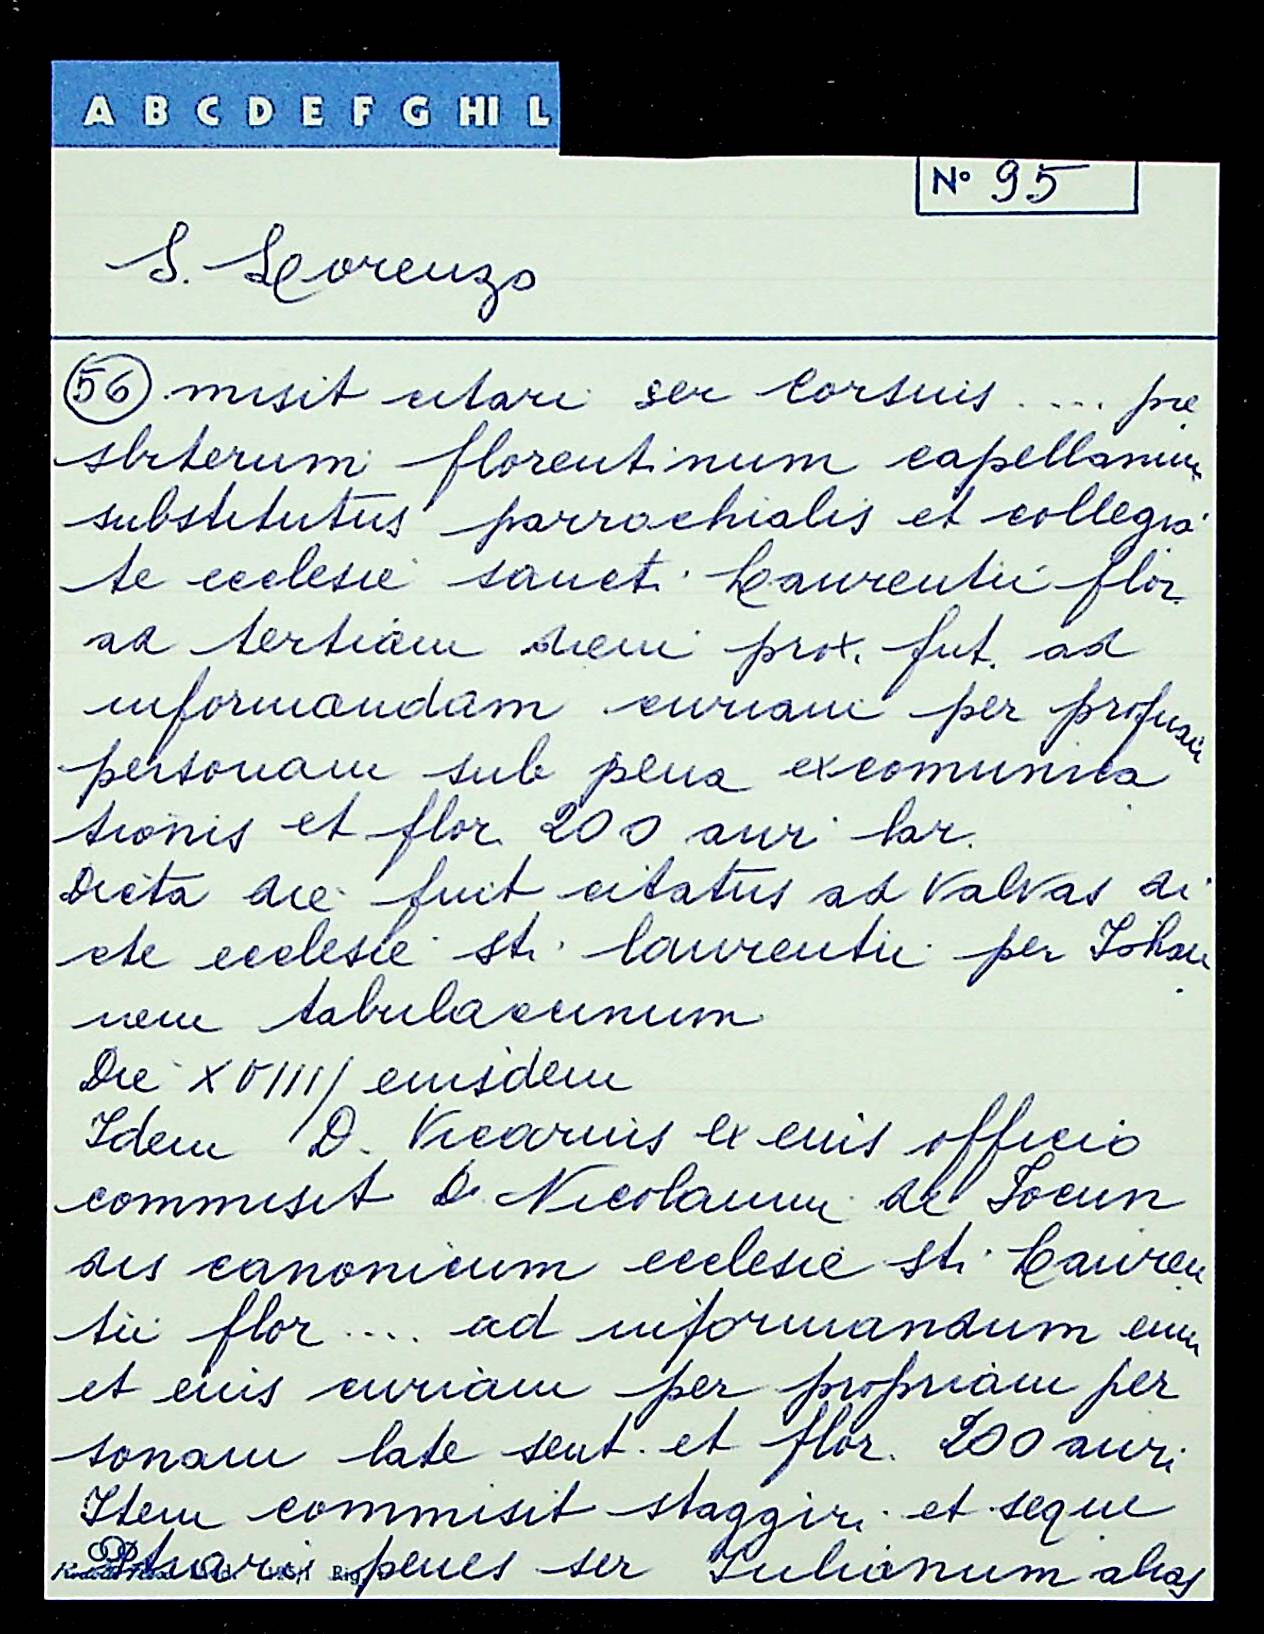 A B C D E F G HI L
N° 95
S. Lorenzo
56 misit citari ser Corsius .... pre
sbiterum florentinum capellanum
substitutus parrochialis et collegia
te ecclesie sancti Laurentii flor.
ad tertiam diem prox. fut. ad
informandam curiam per propriam
personam sub pena excomunica
tionis et flor. 200 auri lar.
Dicta die fuit citatus ad valvas di
cte ecclesie sti laurentii per Johan
nem tabulaccinum
Die XVIIII eiusdem
Idem D. Vicarius ex eius officio
commisit D. Nicolaum de Jocun
dis canonicum ecclesie sti Lauren
tii flor .... ad informandum eum
et eius curiam per propriam per
sonam late sent. et flor. 200 auri
Item commisit staggiri et seque
strari penes ser Julianum alias